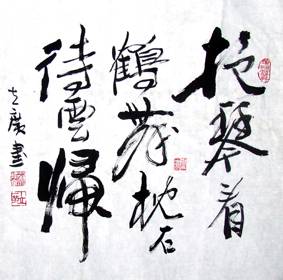 抱琴看
鶴舞枕石
待雲歸
志廣書